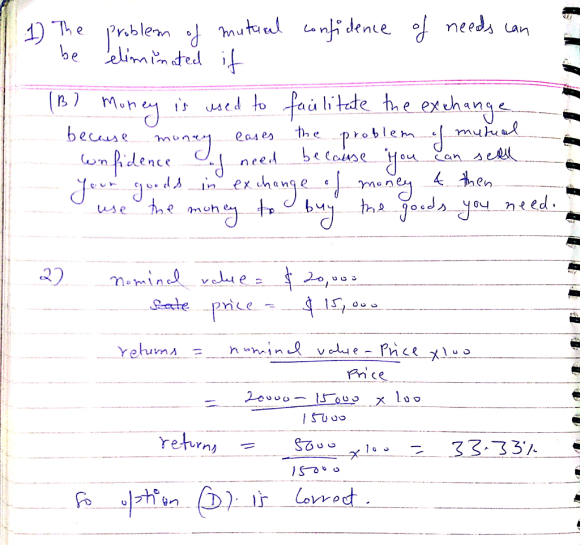 1) The problem of mutual confidence of needs can
be eliminated if
(B) Money is used to facilitate the exchange
because money eases the problem of mutual
confidence of need because you can sell
your goods in exchange of money & then
use the money to buy the goods you need.
2) nominal value = $ 20,000
Sale price = $ 15,000
returns = nominal value - Price x100
Price
= 20000 - 15000 x 100
15000
returns = 5000 x100 = 33.33%
15000
So option (D) is correct.